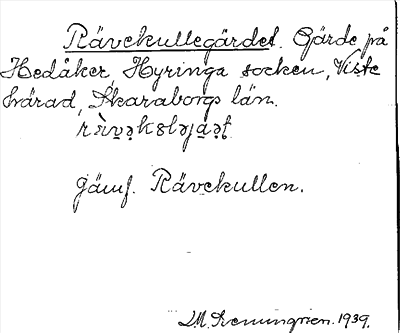 Rävekullegärdet. Gärde på
Hedåker, Hyringa socken, Viste
härad, Skaraborgs län.
Jämf. Rävekullen.
1939.